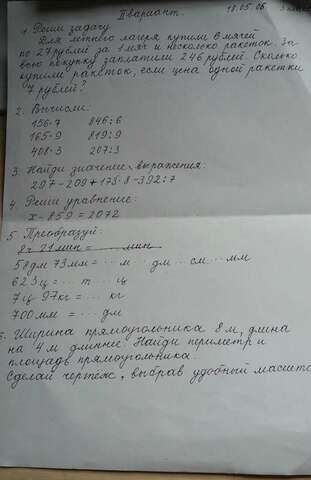 II вариант. 18.05.06
1. Реши задачу
Для летнего лагеря купили 6 мячей
по 27 рублей за 1 мяч и несколько ракеток. За
всю покупку заплатили 246 рублей. Сколько
купили ракеток, если цена одной ракетки
7 рублей?
2. Вычисли:
156·7 846:6
165·9 819:9
408·3 207:3
3. Найди значение выражения:
297-209+173·8-392:7
4. Реши уравнение:
x-859=2072
5. Преобразуй:
8ч 21мин = ... мин
58дм 73мм = ... м ... дм ... см ... мм
623ц = ... т ... ц
7ц 97кг = ... кг
700мм = ... дм
6. Ширина прямоугольника 8м, длина
на 4м длиннее. Найди периметр и
площадь прямоугольника.
Сделай чертёж, выбрав удобный масшта